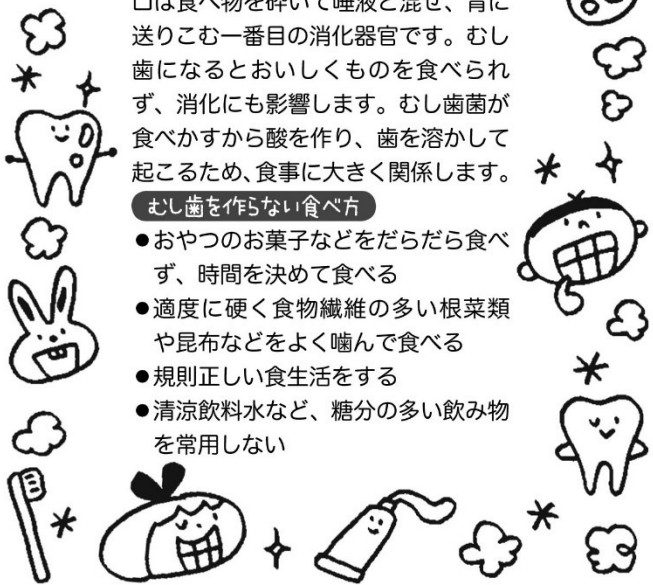 口は食べ物を砕いて唾液と混ぜ、胃に
送りこむ一番目の消化器官です。むし
歯になるとおいしくものを食べられ
ず、消化にも影響します。むし歯菌が
食べかすから酸を作り、歯を溶かして
起こるため、食事に大きく関係します。
むし歯を作らない食べ方
●おやつのお菓子などをだらだら食べ
ず、時間を決めて食べる
●適度に硬く食物繊維の多い根菜類
や昆布などをよく噛んで食べる
●規則正しい食生活をする
●清涼飲料水など、糖分の多い飲み物
を常用しない